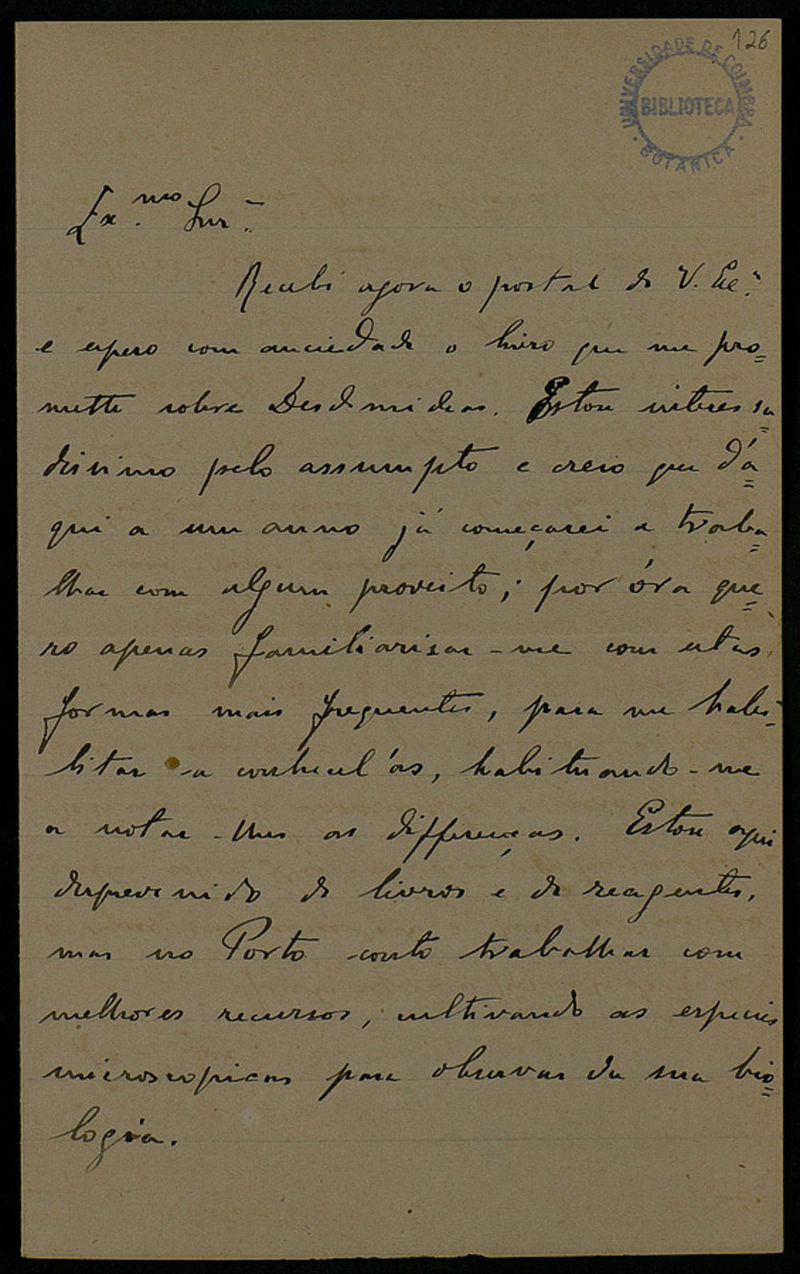 126
UNIVERSIDADE DE COIMBRA
BIBLIOTECA
BOTANICA
Ex.mo Snr.
Recebi agora o postal de V. Exc.ª
e espero com anciedade o livro que me pro=
mette sobre Desdemideas. Estou interessa=
dissimo pelo assumpto e creio que d'a=
qui a um anno já começarei a traba=
lhar com algum proveito; por óra que=
ro apenas familiarisar-me com estas
formas mais frequentes, para me habi=
litar a conhecel'as, habituando-me
a notar-lhes as differenças. Estou aqui
desprevenido de livros e de reagentes,
mas no Porto conto trabalhar com
melhores recursos, cultivando as especies
microscopicas para observar da sua bio=
logia.